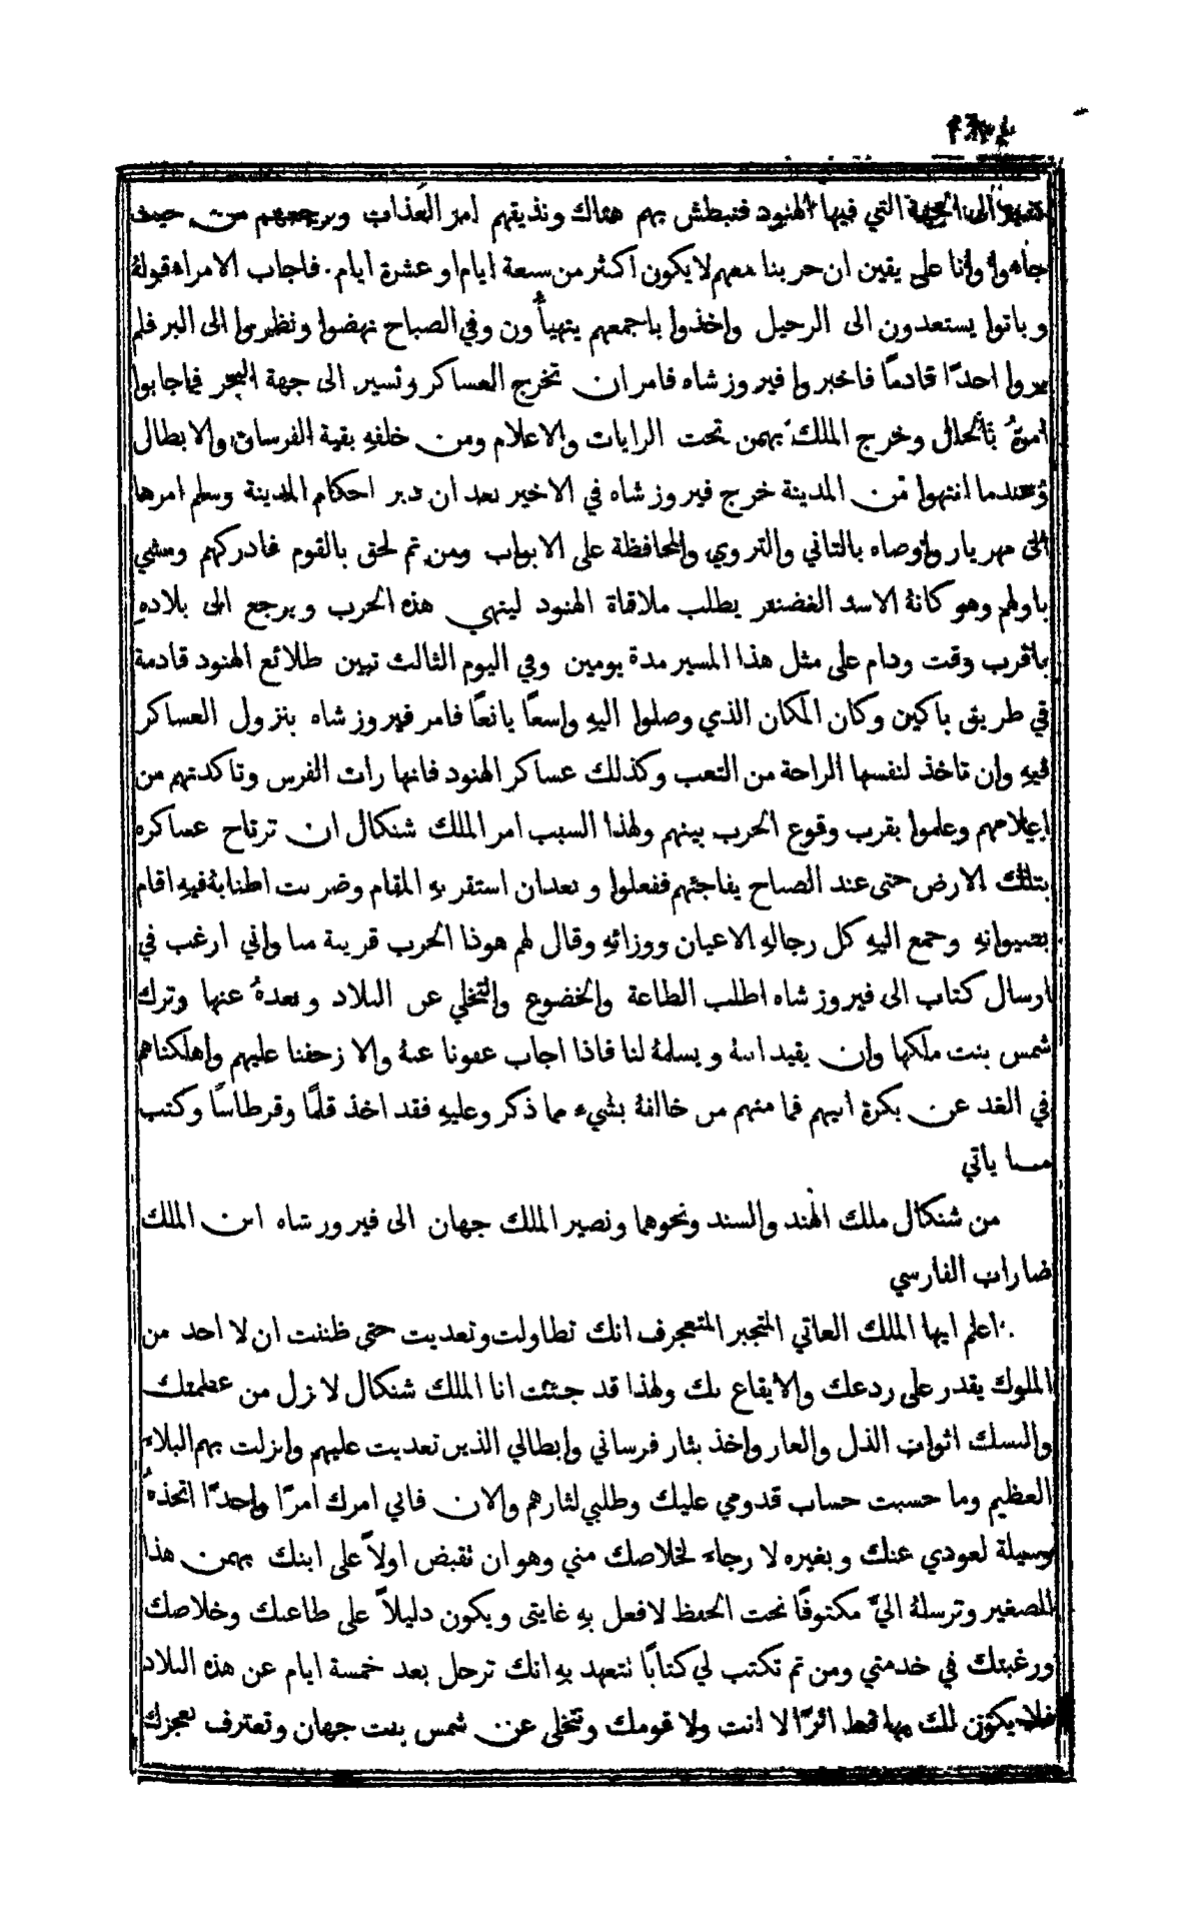 الى الجهة التي فيها الهنود فنبطش بهم هناك ونذيقهم امر العذاب ونرجعهم من حيث
جاهوا وانا على يقين ان حربنا معهم لا يكون اكثر من سبعة ايام او عشرة ايام. فاجاب الامراه قولة
وباتوا يستعدون الى الرحيل واخذوا باجمعهم يتهيأون وفي الصباح نهضوا ونظروا الى البر فلم
يروا احدًا قادمًا فاخبروا فيروزشاه فامر ان تخرج العساكر وتسير الى جهة البحر فاجابوا
امرهُ بالحال وخرج الملك بهمن تحت الرايات والاعلام ومن خلفهِ بقية الفرسان والابطال
وعندما انتهوا من المدينة خرج فيروزشاه في الاخير بعد ان دبر احكام المدينة وسلم امرها
الى مهريار واوصاه بالتاني والتروي والمحافظة على الابواب ومن ثم لحق بالقوم فادركهم ومشى
باولهم وهو كانهُ الاسد الغضنفر يطلب ملاقاة الهنود لينهي هذه الحرب ويرجع الى بلادهِ
باقرب وقت ودام على مثل هذا المسير مدة يومين وفي اليوم الثالث تبين طلائع الهنود قادمة
في طريق باكين وكان المكان الذي وصلوا اليهِ واسعًا يانعًا فامر فيروزشاه بنزول العساكر
فيهِ وان تاخذ لنفسها الراحة من التعب وكذلك عساكر الهنود فانها رات الفرس وتاكدتهم من
اعلامهم وعلموا بقرب وقوع الحرب بينهم ولهذا السبب امر الملك شنكال ان ترتاح عساكره
بتلك الارض حتى عند الصباح يفاجئهم ففعلوا وبعد ان استقر بهِ المقام وضربت اطنابهُ فيهِ اقام
بصيوانهِ وجمع اليهِ كل رجالهِ الاعيان ووزرائهِ وقال لهم هوذا الحرب قريبة منا واني ارغب في
ارسال كتاب الى فيروزشاه اطلب الطاعة والخضوع والتخلي عن البلاد وبعدهُ عنها وترك
شمس بنت ملكها وان يقيد ابنهُ ويسلمهُ لنا فاذا اجاب عفونا عنهُ والا زحفنا عليهم واهلكناهم
في الغد عن بكرة ابيهم فما منهم من خالفهُ بشيء مما ذكر وعليهِ فقد اخذ قلمًا وقرطاسًا وكتب
ما ياتي
من شنكال ملك الهند والسند ونحوهما ونصير الملك جهان الى فيروزشاه ابن الملك
ضاراب الفارسي
اعلم ايها الملك العاتي المتجبر المتعجرف انك تطاولت وتعديت حتى ظننت ان لا احد من
الملوك يقدر على ردعك والايقاع بك ولهذا قد جئت انا الملك شنكال لانزل من عظمتك
والبسك اثواب الذل والعار واخذ بثار فرساني وابطالي الذين تعديت عليهم وانزلت بهم البلاء
العظيم وما حسبت حساب قدومي عليك وطلبي لثارهم والان فاني امرك امرًا واحدًا اتخذهُ
وسيلة لعودي عنك وبغيره لا رجاء لخلاصك مني وهو ان تقبض اولاً على ابنك بهمن هذا
الصغير وترسلهُ اليّ مكتوفًا تحت الحفظ لافعل بهِ غايتى ويكون دليلاً على طاعتك وخلاصك
ورغبتك في خدمتي ومن ثم تكتب لي كتابًا تتعهد بهِ انك ترحل بعد خمسة ايام عن هذه البلاد
فلا يكون لك بها قط اثرًا لا انت ولا قومك وتتخلى عن شمس بنت جهان وتعترف بعجزك